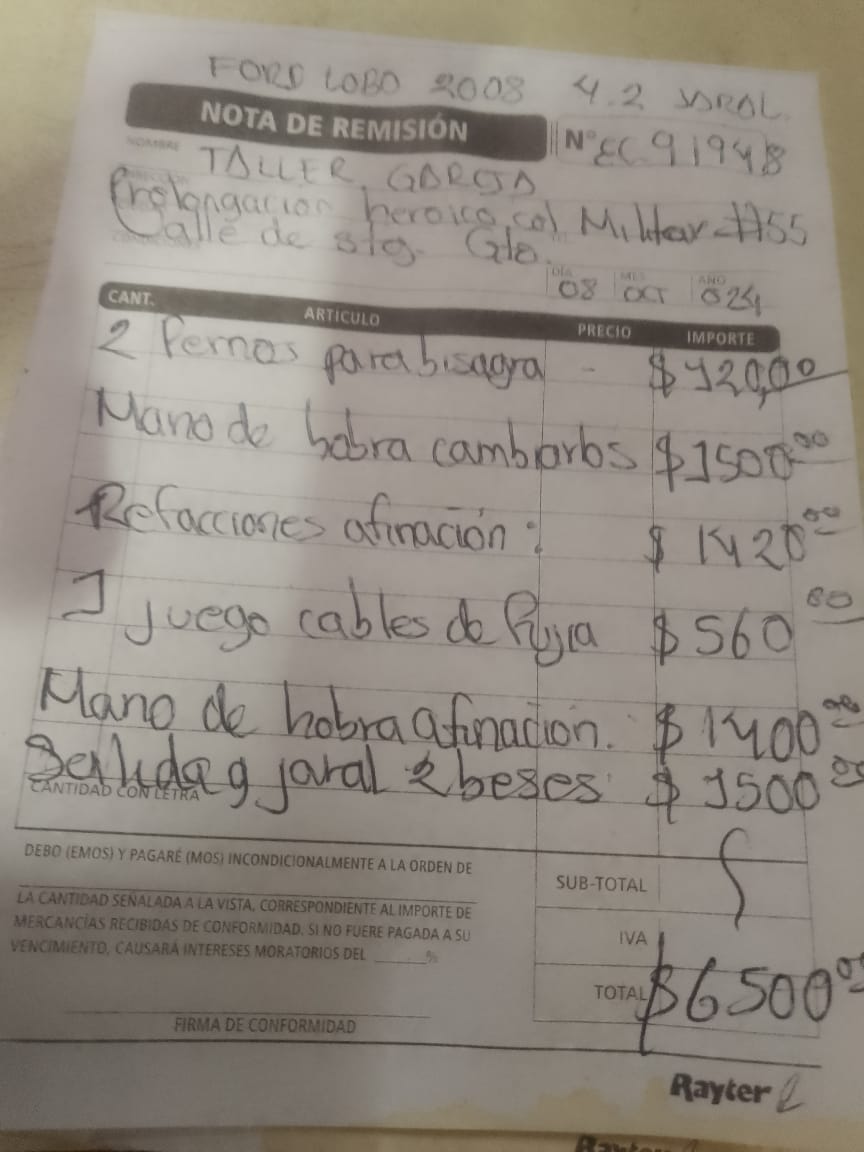 FORD LOBO 2008 4.2 JARAL.
NOTA DE REMISIÓN
N° EC 91948
NOMBRE TALLER GARCIA
Prolongacion heroico col Militar #55
Valle de stg. Gto.
DÍA MES AÑO
08 OCT 024
CANT. ARTÍCULO PRECIO IMPORTE
2 Pernos para bisagra - $ 120,00
Mano de hobra cambiarlos $1500.00
Refacciones afinación: $ 1420.00
1 Juego cables de Bujia $ 560 00
Mano de hobra afinacion. $ 1400 00
Salida a jaral 2 beses $ 1500 00
CANTIDAD CON LETRA
DEBO (EMOS) Y PAGARÉ (MOS) INCONDICIONALMENTE A LA ORDEN DE
LA CANTIDAD SEÑALADA A LA VISTA, CORRESPONDIENTE AL IMPORTE DE
MERCANCÍAS RECIBIDAS DE CONFORMIDAD. SI NO FUERE PAGADA A SU
VENCIMIENTO, CAUSARÁ INTERESES MORATORIOS DEL ______%
SUB-TOTAL
IVA
TOTAL $6500 00
FIRMA DE CONFORMIDAD
Rayter
Rayter